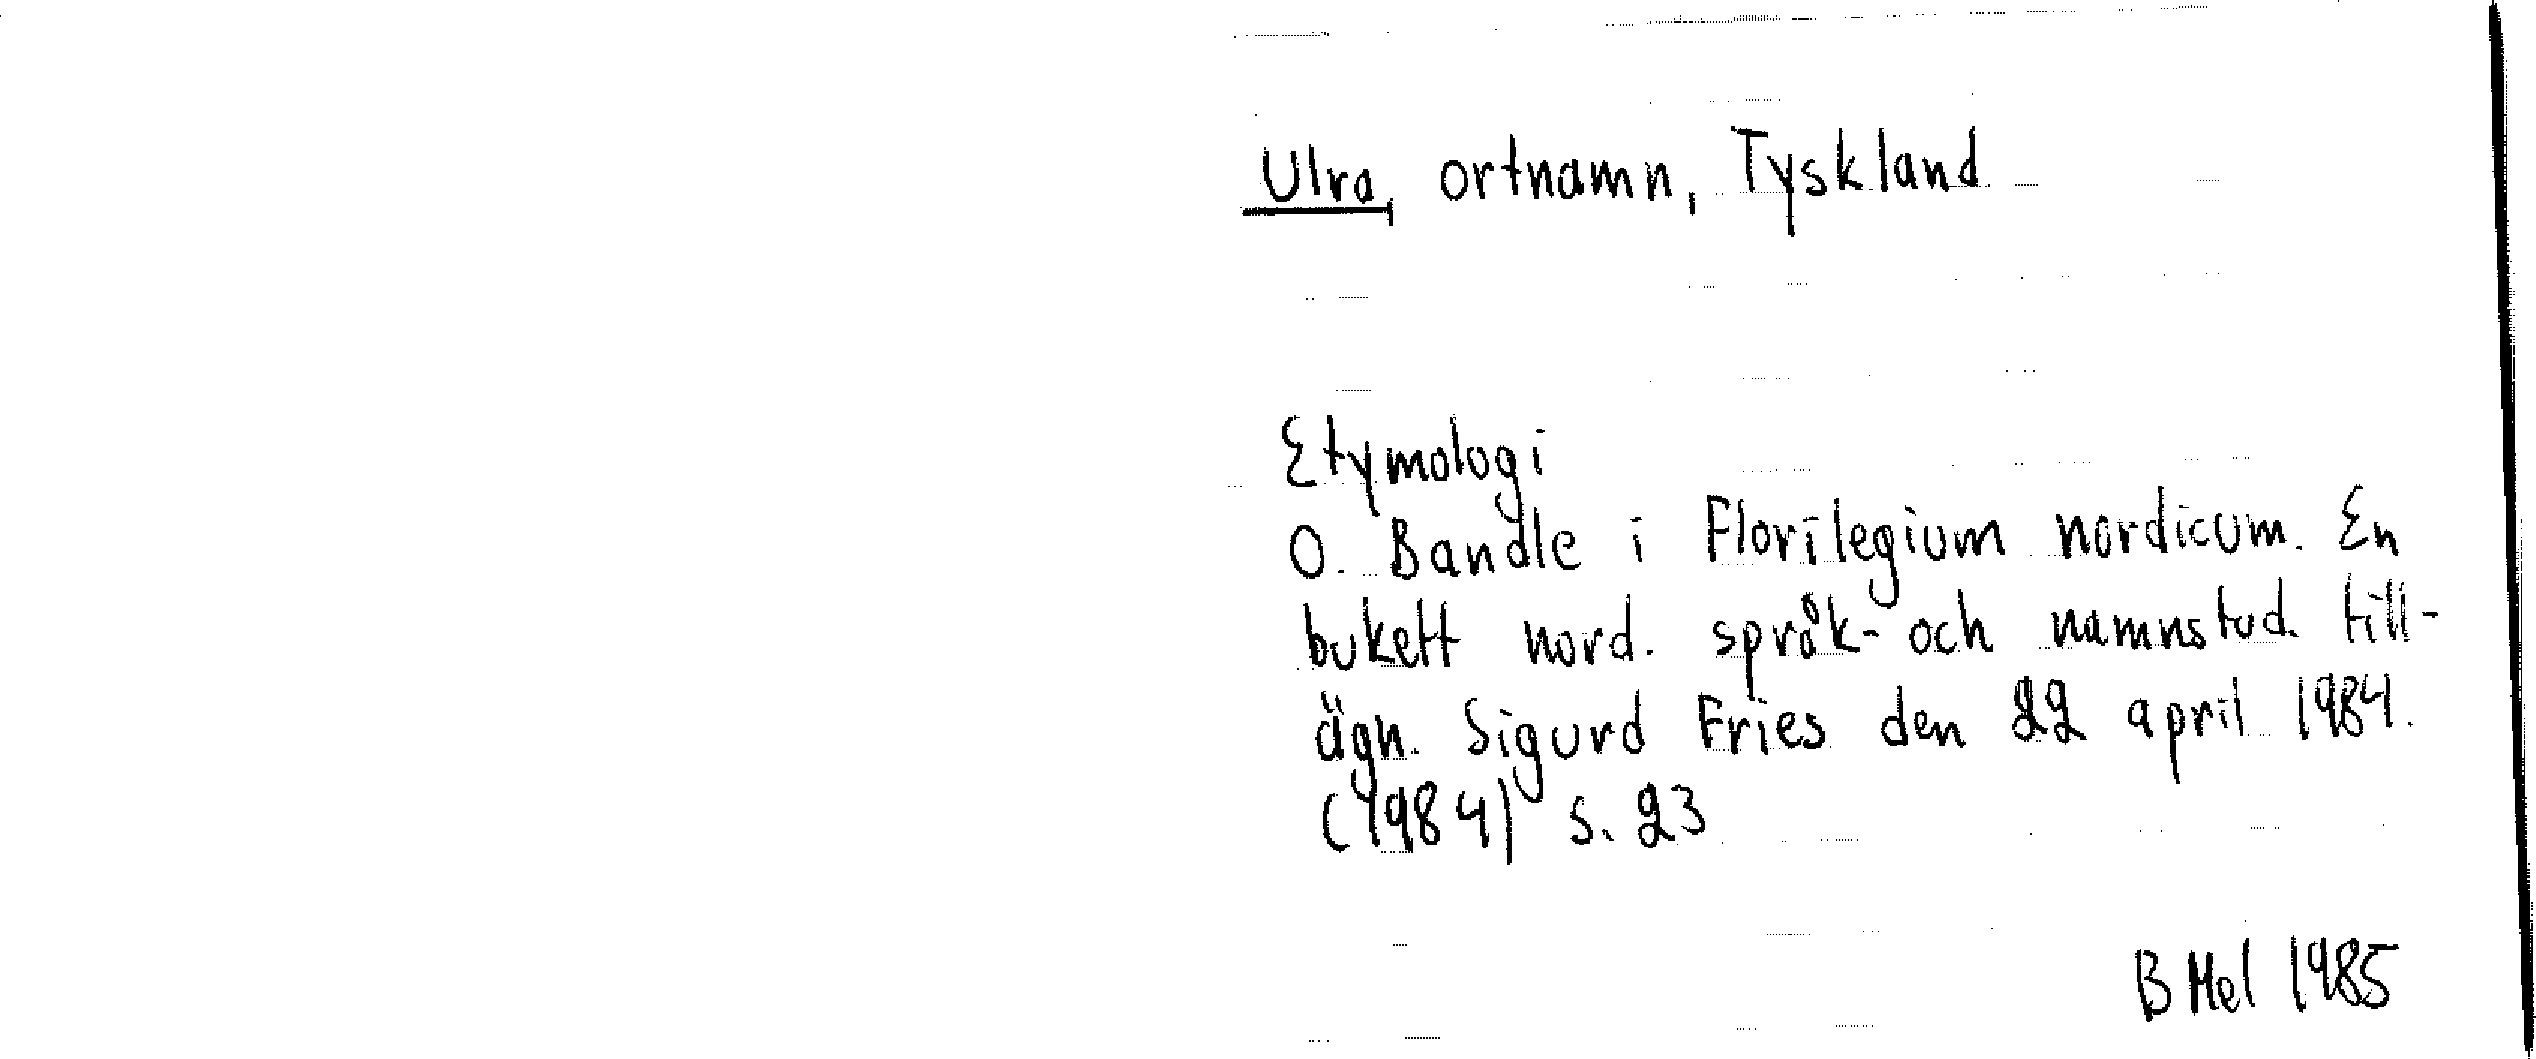 Ulra, ortnamn, Tyskland
Etymologi
O. Bandle i Florilegium nordicum. En
bukett nord. språk- och namnstud. till-
ägn. Sigurd Fries den 22 april 1984.
(1984) s. 23
B Mel 1985